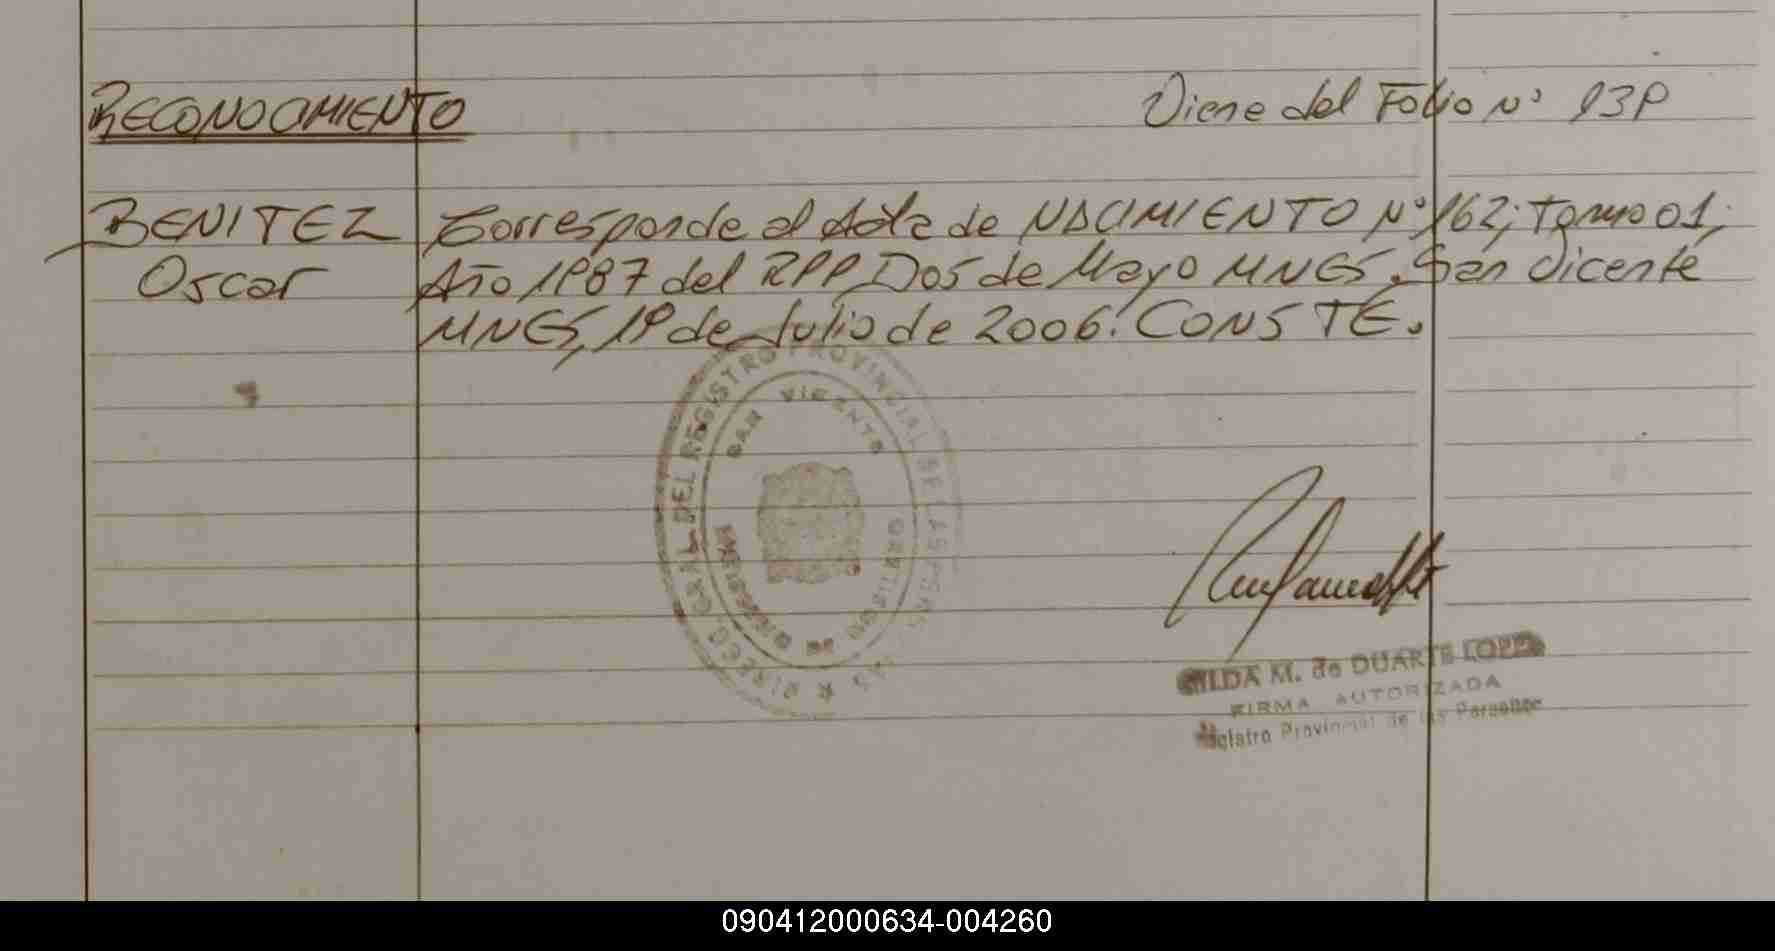 RECONOCIMIENTO
Viene del Folio Nº 139
BENITEZ
Oscar
Corresponde al Acta de NACIMIENTO Nº 162; Tomo 01;
Año 1987 del RPP Dos de Mayo MNES. San Vicente
MNES, 19 de Julio de 2006. CONSTE.
DIRECC. GRAL. DEL REGISTRO PROVINCIAL DE LAS PERS
SAN VICENTE
HILDA M. de DUARTE LOPEZ
FIRMA AUTORIZADA
Registro Provincial de las Personas
090412000634-004260